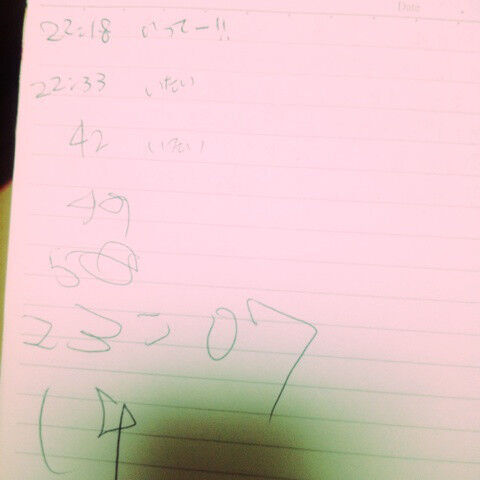 Date
22:18 いってー!!
22:33 いたい
42 いたい
49
58
23:07
14